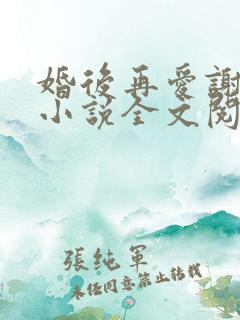 婚後再愛謝
小説全文閱
張純軍
未經同意禁止轉載